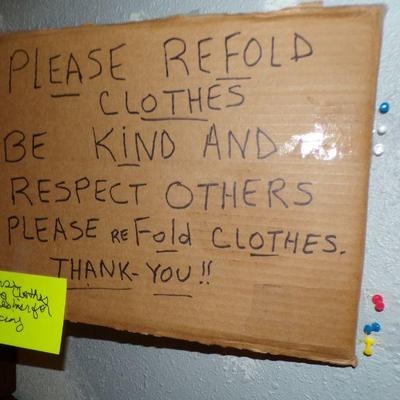 PLEASE REFOLD
CLOTHES
BE KIND AND
RESPECT OTHERS
PLEASE reFold CLOTHES.
THANK-YOU!!
Clothes